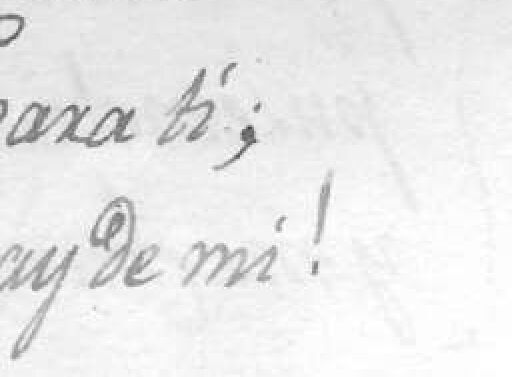 Para ti;
ay de mi!